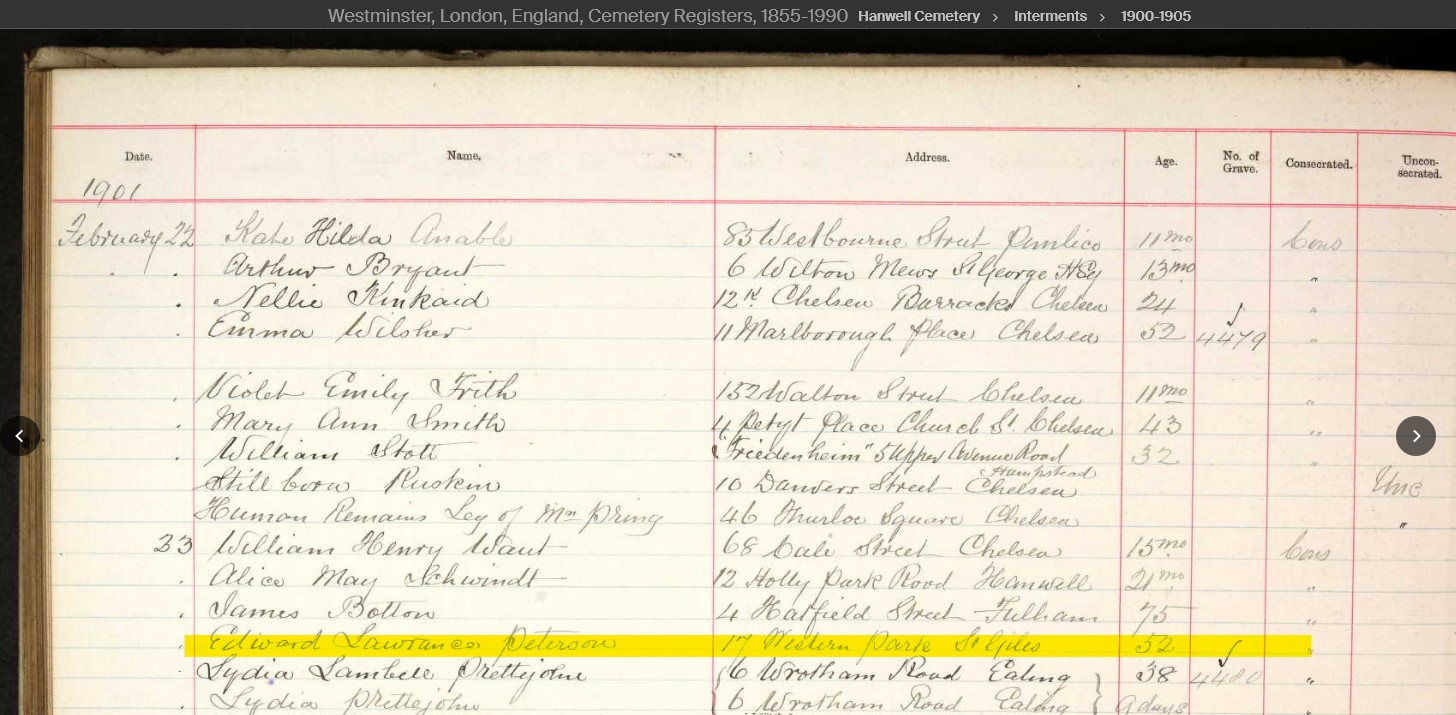 Westminster, London, England, Cemetery Registers, 1855-1990 Hanwell Cemetery > Interments > 1900-1905
Date. Name. Address. Age. No. of Grave. Consecrated. Uncon-secrated.
1901
February 22 Kate Hilda Anable 83 Westbourne Street Pimlico 11 mo Cons
. . Arthur Bryant 6 Wilton Mews St George H Sq 13 mo "
. Nellie Kinkaid 12 Chelsea Barracks Chelsea 24 "
. Emma Wilsher 11 Marlborough Place Chelsea 52 4479 "
. Violet Emily Frith 152 Walton Street Chelsea 11 mo "
. Mary Ann Smith 4 Petyt Place Church St. Chelsea 43 "
. William Stott "Friedenheim" 5 Upper Avenue Road Hampstead 32 "
Still born Ruskin 10 Danvers Street Chelsea Unc
Human Remains Leg of Mrs Pring 46 Thurloe Square Chelsea "
23 William Henry Want 68 Cale Street Chelsea 15 mo Cons
. Alice May Schwindt 12 Holly Park Road Hanwell 21 mo "
. James Botton 4 Hatfield Street Fulham 75 "
. Edward Lawrance Peterson 17 Western Park St Giles 52 "
. Lydia Lambele Prettejohn 6 Wrotham Road Ealing 38 4480 "
. Lydia Prettejohn 6 Wrotham Road Ealing 9 days